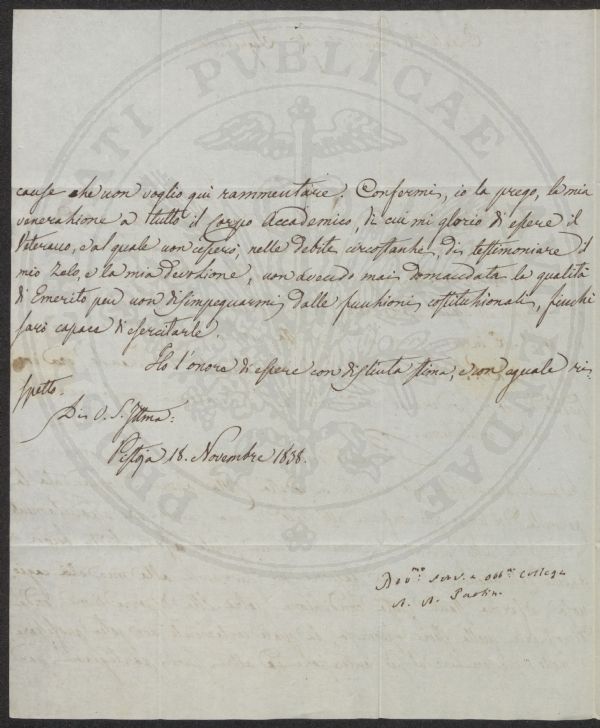 cause che non voglio qui rammentare. Confermi, io la prego, la mia
venerazione a tutto il Corpo Accademico, di cui mi glorio di essere il
Veterano, e al quale non cesserò, nelle debite circostanze, di testimoniare il
mio zelo, e la mia devozione, non avendo mai domandata la qualità
di Emerito per non disimpegnarmi dalle funzioni costituzionali, finchè
sarò capace di esercitarle.
Ho l'onore di essere con distinta stima, e con eguale ri-
spetto.
Di V. S. Illma:
Pistoja 18. Novembre 1838.
Dev.mo serv. e obb.mo Collega